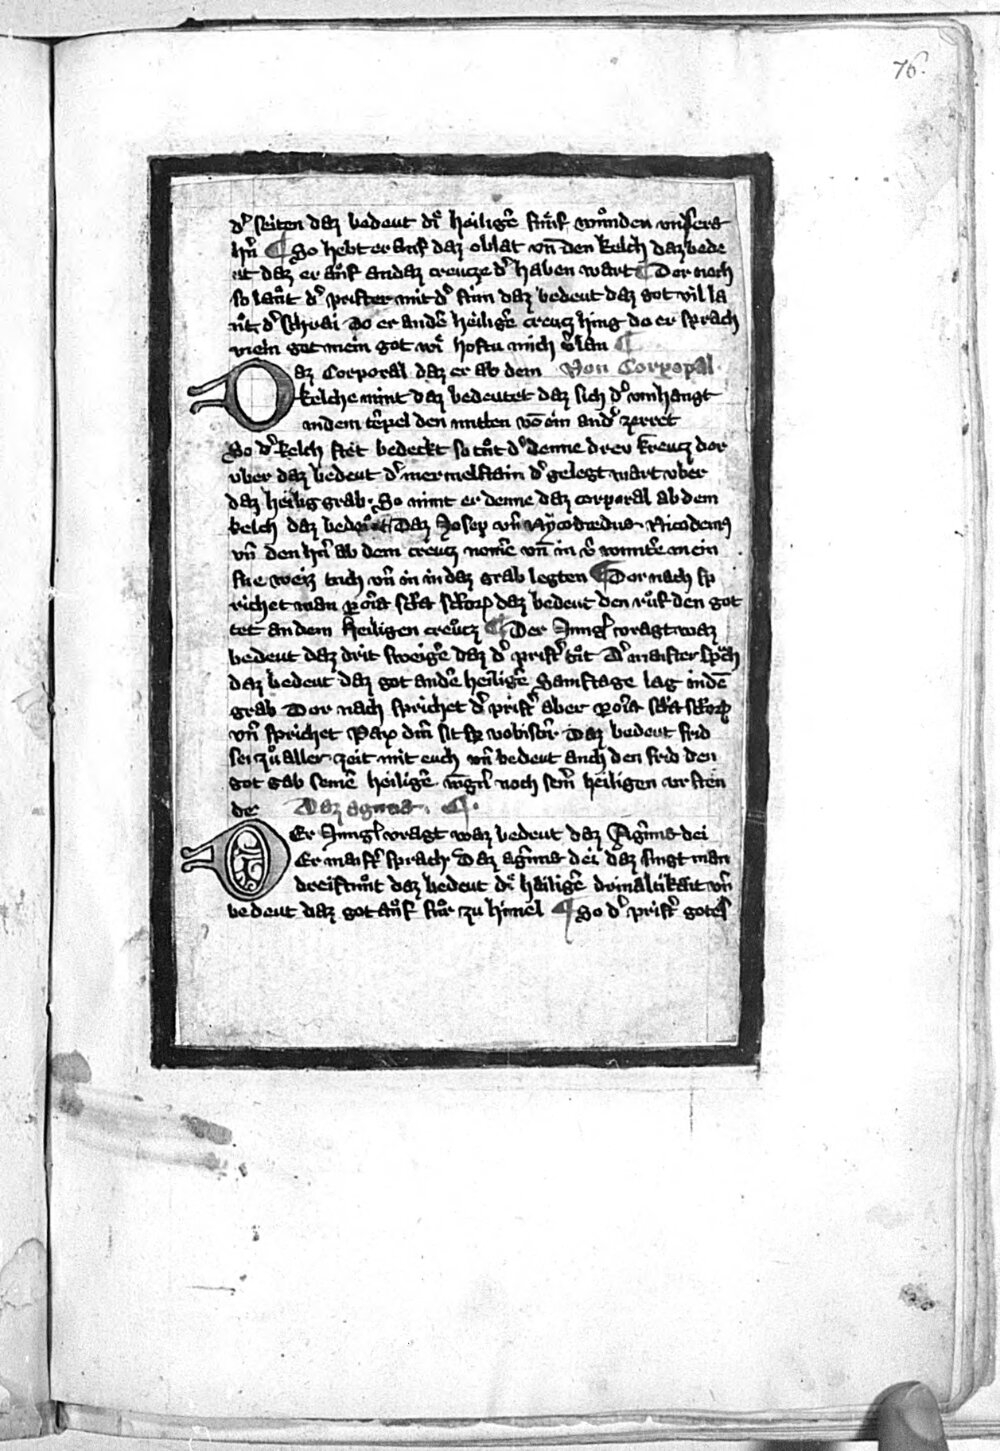 76.
dˢ seiten daz bedeut di heiligē fünf wůnden unsers
hrn̄ ¶ So hebt er auf daz oblat vn̄ den kelch daz bede
ut daz er auf an daz creucze dˢ haben wart ¶ Dor noch
so laut dˢ prister mit dˢ stim daz bedeut daz got vil la
ut dˢ schrai do er andē heiligē creucz hing do er sprach
mein got mein got wi hostu mich vˢlan ¶
Daz Corporal daz er ab dem Von Corporal.
kelche nimt daz bedeutet daz sich dˢ vmhangt
indem tēpel den mitten vō ein andˢ zerret
So dˢ kelch stet bedeckt so tut dˢ denne drev kreucz dor
vber daz bedeut dˢ mermelstain dˢ gelegt wart vber
daz heilig grab. So nimt er denne daz corporal ab dem
kelch daz bedeut Daz Josep vn̄ Nycodemus Nicodemus
vn̄ den hrn̄ ab dem creucz nomē vn̄ in
weiz tuch vn̄ in in daz grab legten ¶ Dor nach sp
richet man ꝑ oīa scła scłoꝝ daz bedeut den ruf den got
tet an dem heiligen creucz ¶ Der Jungˢ vragt waz
bedeut daz drit sweigē daz dˢ pristˢ tut Dˢ maister spch
daz bedeut daz got andē heiligē Samstage lag indē
grab Dor nach sprichet dˢ pristˢ aber ꝑ oīa scła scłoꝝ
vn̄ sprichet Pax dm̄ sit sꝑ vobiscū Daz bedeut frid
sei zů aller zeit mit euch vn̄ bedeut auch den frid den
got gab seinē heiligē noch seim̄ heiligen ursten
de Daz agnus. ¶.
Er Jungˢ vragt waz bedeut daz Agnus dei
Er maistˢ sprach. Daz agnus dei daz singt man
dreistunt daz bedeut di heiligē drivaltikait vn̄
bedeut daz got auf fur zu himel ¶ So dˢ pristˢ gotes